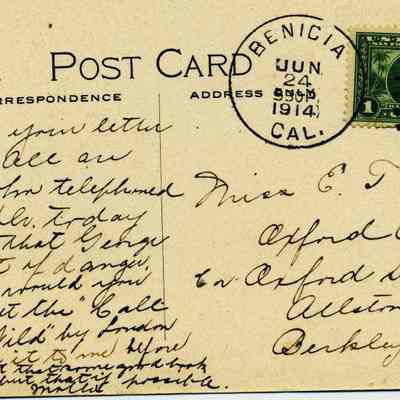 POST CARD
RRESPONDENCE
ADDRESS ONLY
BENICIA
JUN
24
530PM
1914
CAL.
1
your letter
All are
telephoned
today
that George
t of danger,
would you
et the "Call
Wild" by London
it to me before
t that some good book
but that if possible.
Mollie
Miss E. T
Oxford
c/o Oxford
Allston
Berkley